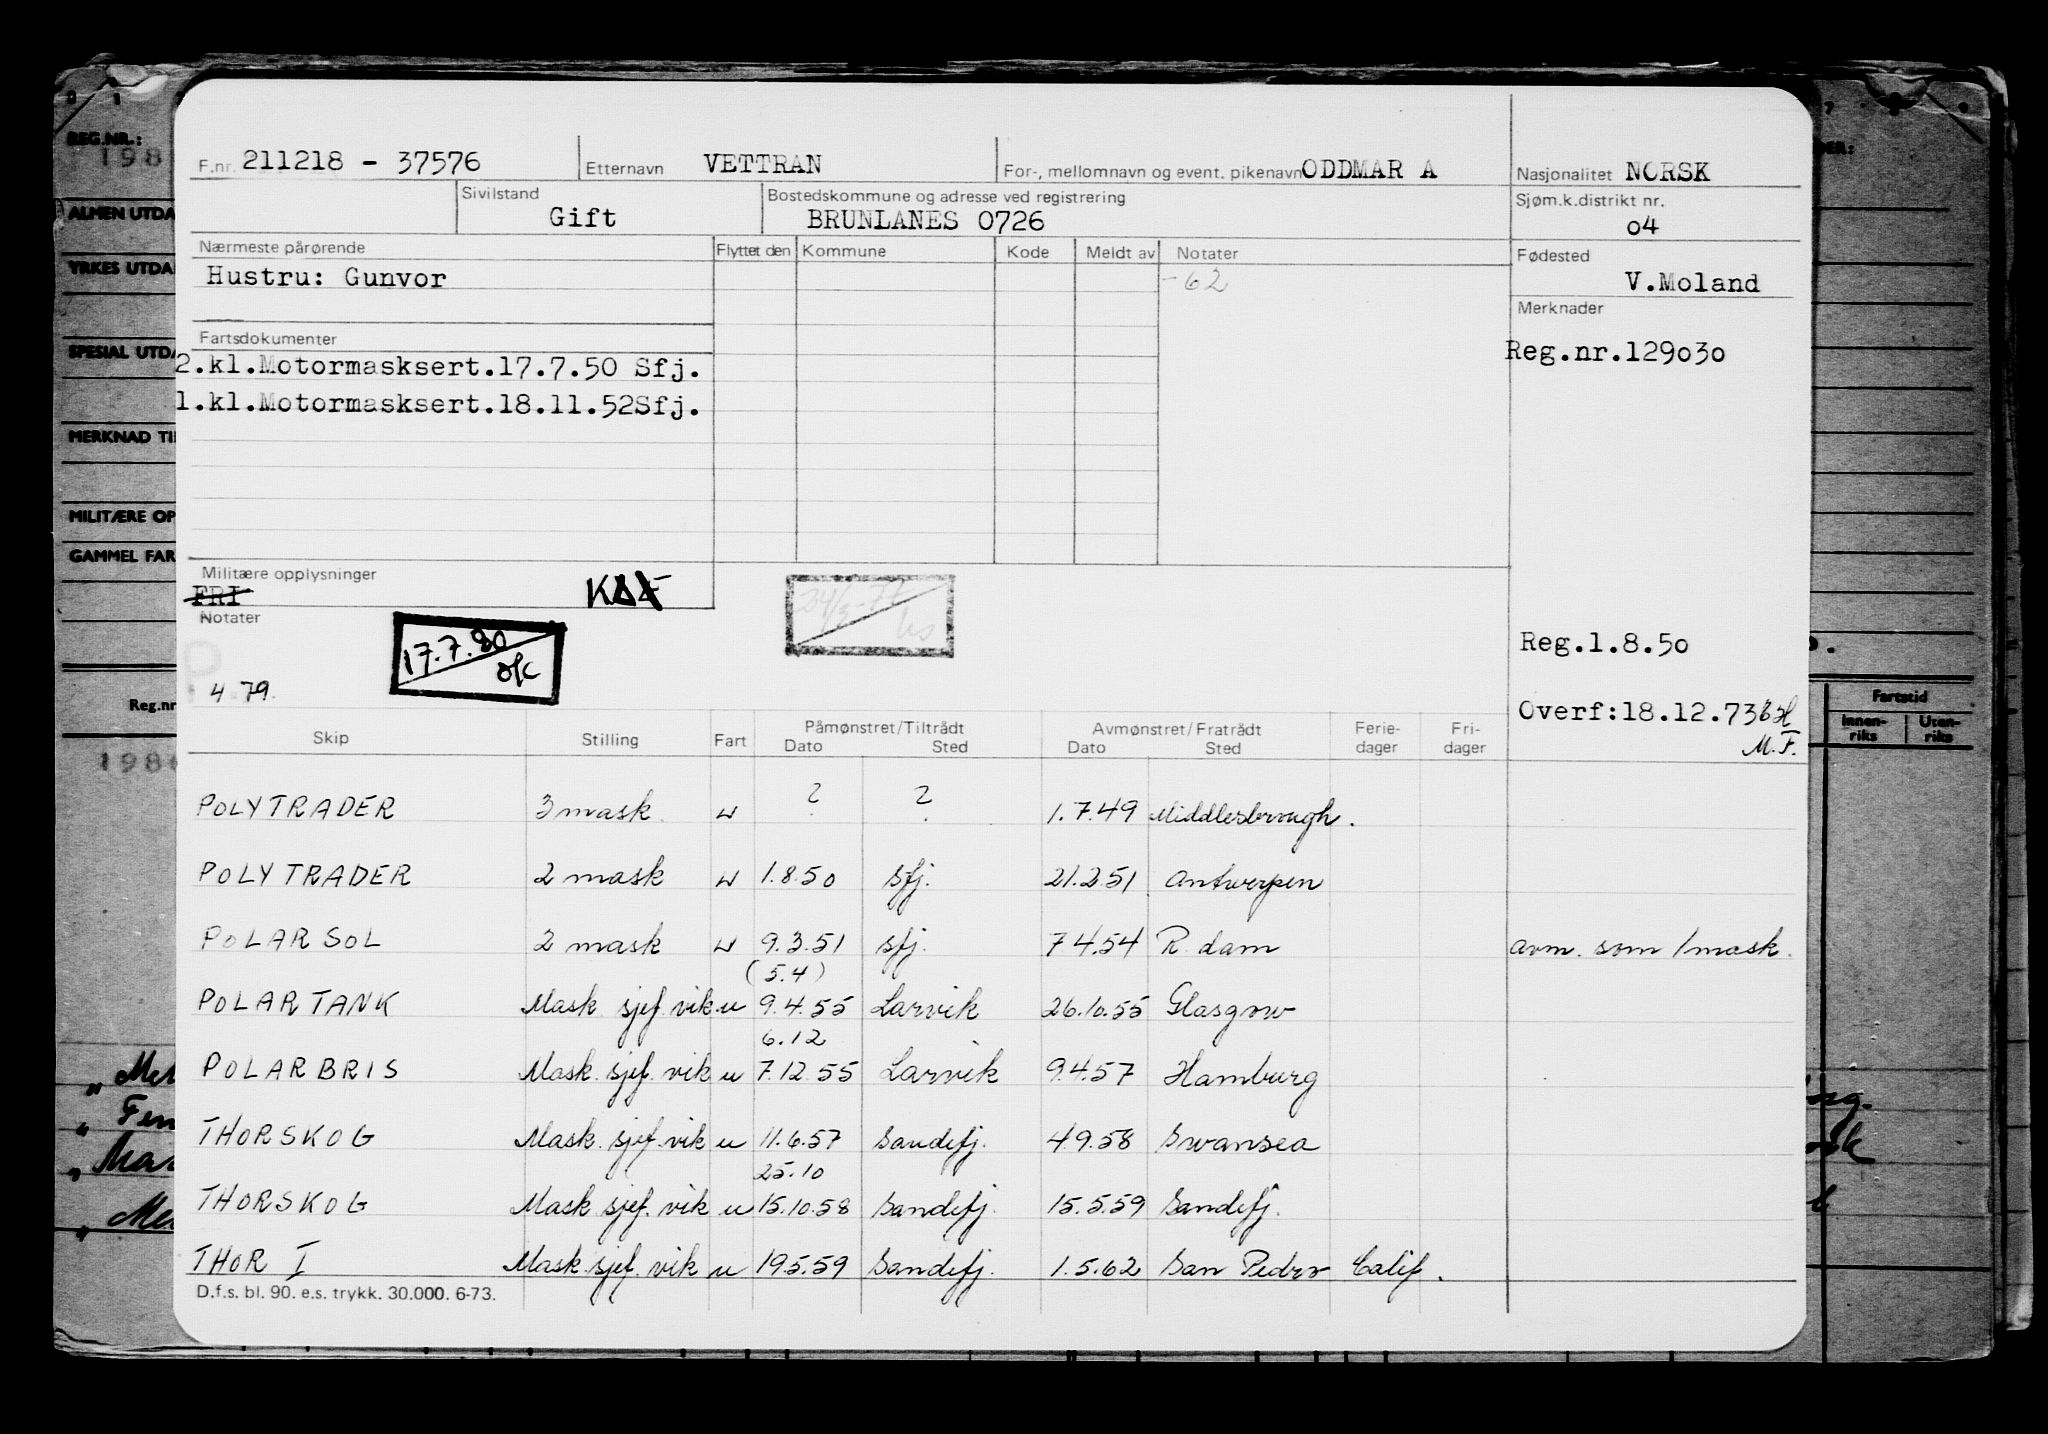 F.nr. 211218 - 37576 Etternavn VETTRAN For-, mellomnavn og event. pikenavn ODDMAR A Nasjonalitet NORSK
Sivilstand Gift Bostedskommune og adresse ved registrering BRUNLANES 0726 Sjøm.k.distrikt nr. 04
Nærmeste pårørende Flyttet den Kommune Kode Meldt av Notater Fødested
Hustru: Gunvor -62 V.Moland
Merknader
Fartsdokumenter Reg.nr.129030
2.kl.Motormasksert.17.7.50 Sfj.
1.kl.Motormasksert.18.11.52Sfj.
Militære opplysninger
FRI
Notater
17.7.80
4 79.
Reg.1.8.50
Overf:18.12.73
M.F.
Skip Stilling Fart Påmønstret/Tiltrådt Dato Sted Avmønstret/Fratrådt Dato Sted Ferie-dager Fri-dager
POLYTRADER 3 mask. u ? ? 1.7.49 Middlesbrough.
POLYTRADER 2 mask u 1.8.50 Sfj. 21.2.51 Antwerpen
POLARSOL 2 mask u 9.3.51 Sfj. 7 4.54 R. dam avm. som 1 mask.
(5.4)
POLARTANK Mask sjef vik. u 9.4.55 Larvik 26.10.55 Glasgow
6.12
POLARBRIS Mask. sjef. vik u 7.12.55 Larvik 9.4.57 Hamburg
THORSKOG Mask. sjef. vik u 11.6.57 Sandefj. 4.9.58 Swansea
25.10
THORSKOG Mask sjef. vik u 15.10.58 Sandefj. 15.5.59 Sandefj.
THOR I Mask. sjef. vik u 19.5.59 Sandefj. 1.5.62 San Pedro Calif.
D.f.s. bl. 90. e.s. trykk. 30.000. 6-73.
REG.NR.:
198
ALMEN UTDA
YRKES UTDA
SPESIAL UTDA
MERKNAD TI
MILITÆRE OP
GAMMEL FAR
Reg.nr
Fartstid
Innen-riks Uten-riks